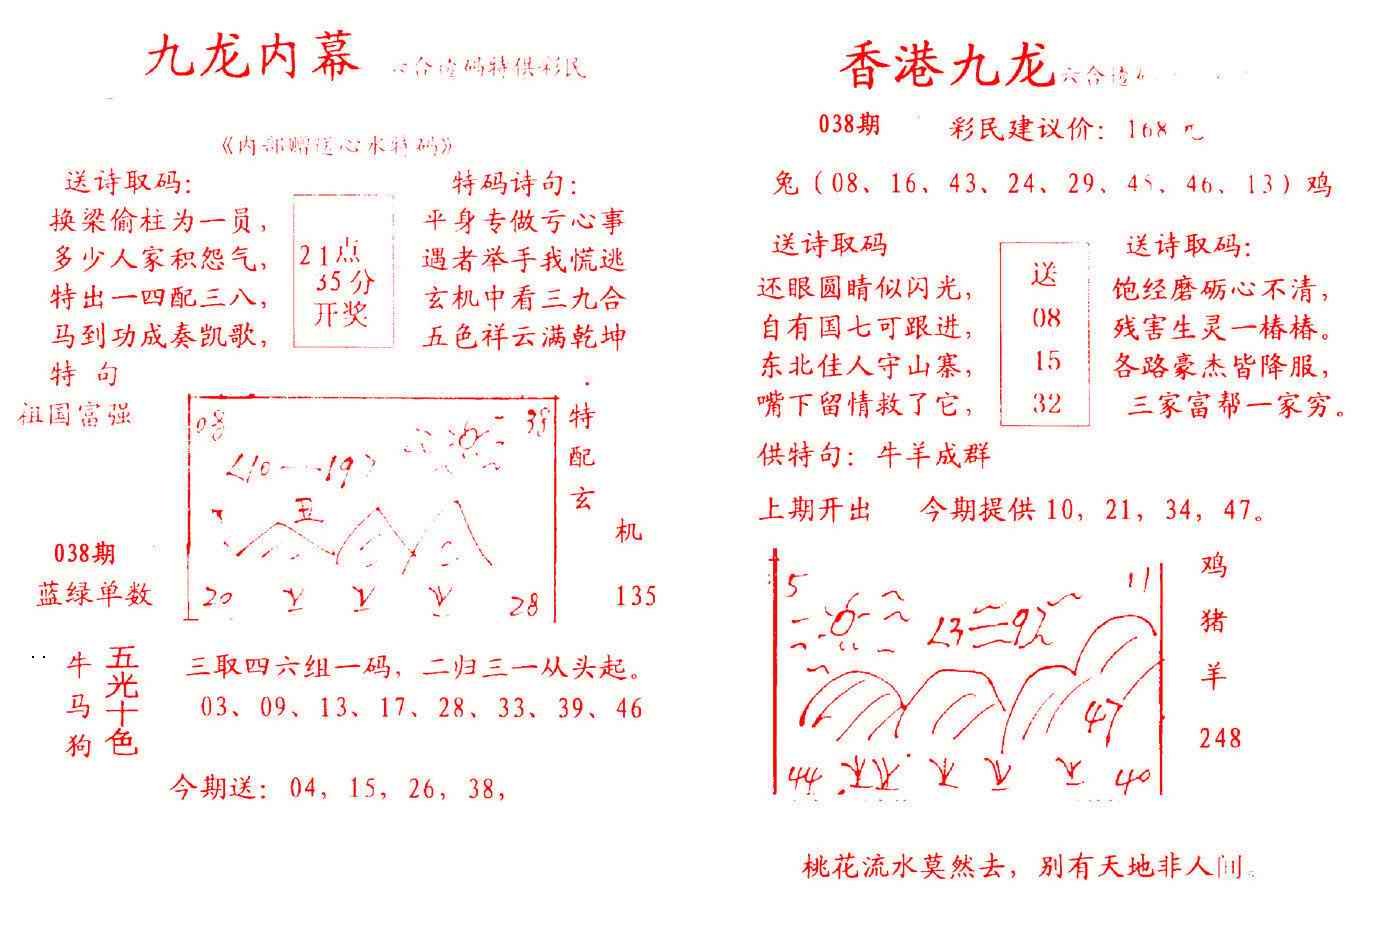 九龙内幕 六合透码特供彩民
《内部赠送心水特码》
送诗取码：
换梁偷柱为一员，
多少人家积怨气，
特出一四配三八，
马到功成奏凯歌，
特 句
祖国富强
21点
35分
开奖
特码诗句：
平身专做亏心事
遇者举手我慌逃
玄机中看三九合
五色祥云满乾坤
08
38
丑
20
28
特
配
玄
机
135
038期
蓝绿单数
牛
马
狗
五光十色
三取四六组一码，二归三一从头起。
03、09、13、17、28、33、39、46
今期送：04，15，26，38，
香港九龙 六合透码
038期 彩民建议价：168元
兔（08、16、43、24、29、45、46、13）鸡
送诗取码
还眼圆睛似闪光，
自有国七可跟进，
东北佳人守山寨，
嘴下留情救了它，
送
08
15
32
送诗取码：
饱经磨砺心不清，
残害生灵一椿椿。
各路豪杰皆降服，
三家富帮一家穷。
供特句：牛羊成群
上期开出 今期提供10，21，34，47。
5
11
47
44
40
鸡
猪
羊
248
桃花流水莫然去，别有天地非人间。